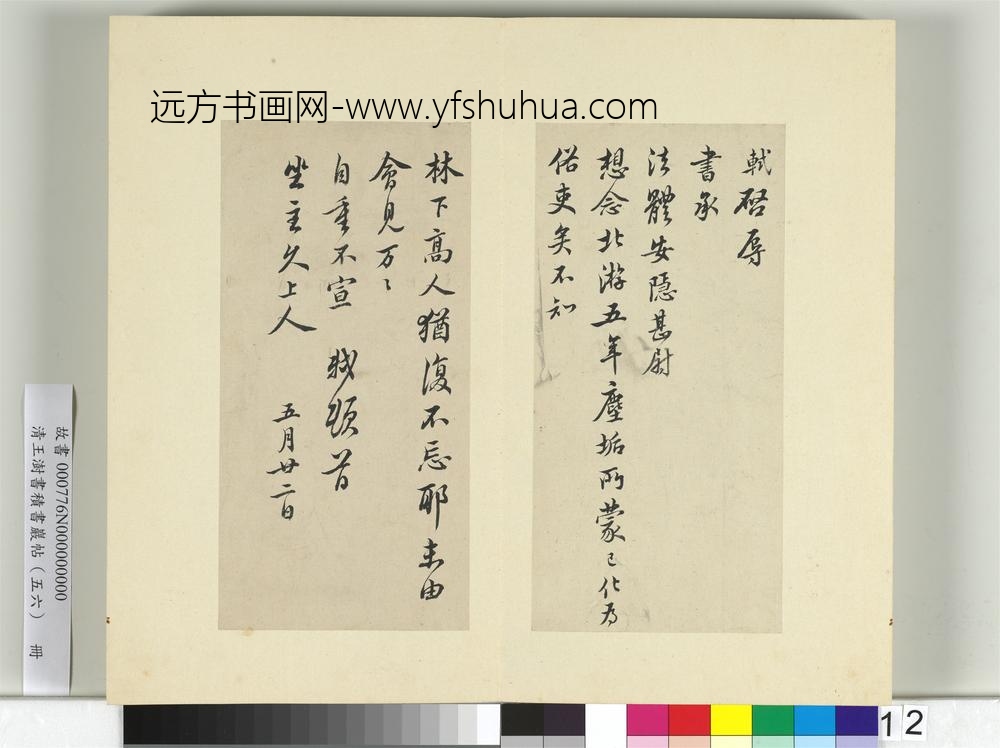 远方书画网-www.yfshuhua.com
軾啓辱
書承
法體安隱甚慰
想念北游五年塵垢所蒙已化為
俗吏矣不知
林下高人猶復不忘耶未由
會見万〻
自重不宣 軾頓首
坐主久上人
五月廿二日
故書000776N000000000
清王澍書積書巖帖(五六) 冊
12